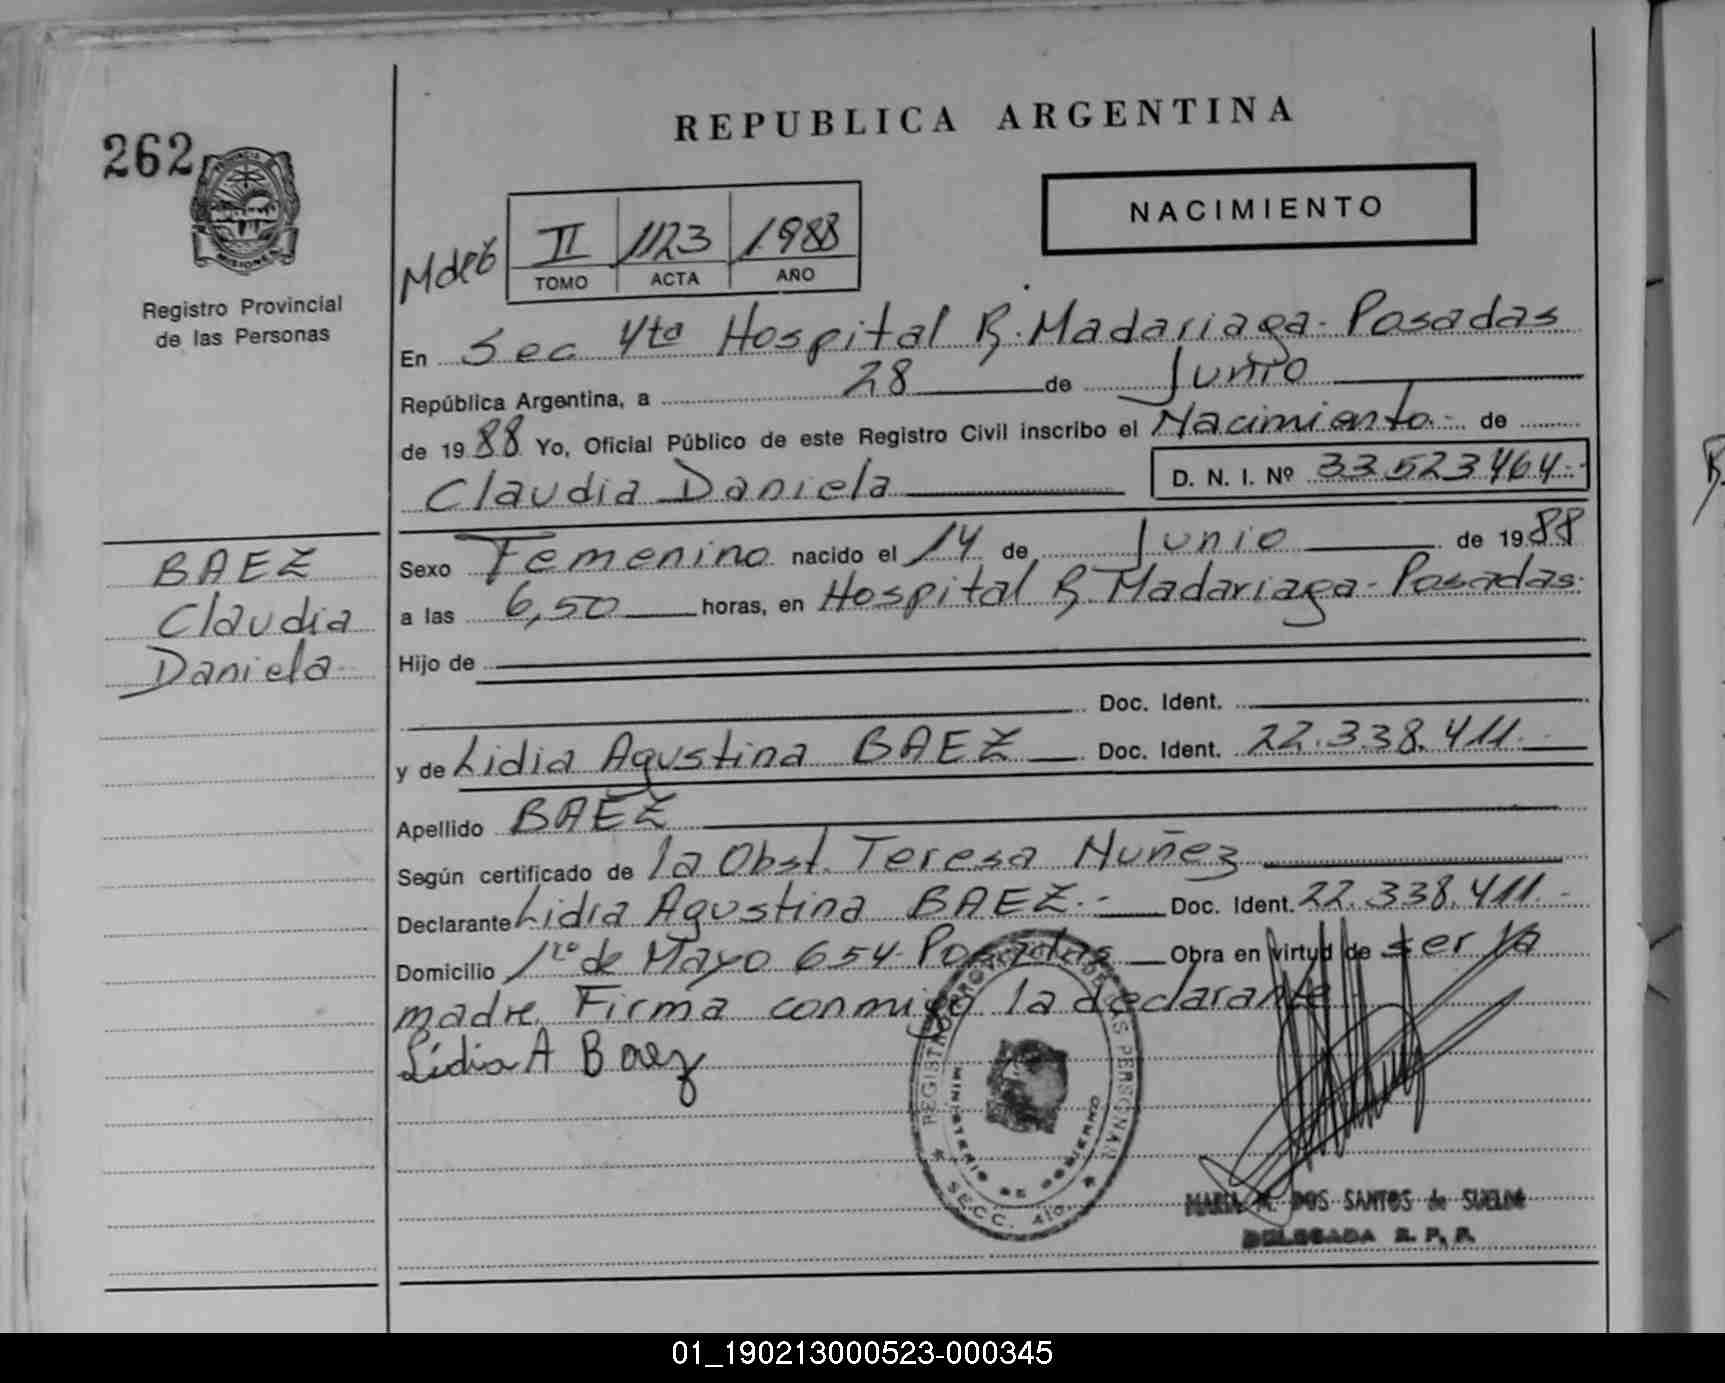 REPUBLICA ARGENTINA
262
PROVINCIA DE
MISIONES
Registro Provincial
de las Personas
NACIMIENTO
II 1123 1988
TOMO ACTA AÑO
En Sec 4ta Hospital R. Madariaga - Posadas
República Argentina, a 28 de Junio
de 1988 Yo, Oficial Público de este Registro Civil inscribo el Nacimiento.- de
Claudia Daniela D. N. I. Nº 33.523.464.-
BAEZ
Claudia
Daniela
Sexo Femenino nacido el 14 de Junio de 1988
a las 6,50 horas, en Hospital R. Madariaga - Posadas.
Hijo de
Doc. Ident.
y de Lidia Agustina BAEZ Doc. Ident. 22.338.411.
Apellido BAEZ
Según certificado de la Obst. Teresa Nuñez
Declarante Lidia Agustina BAEZ.- Doc. Ident. 22.338.411.-
Domicilio 1ro de Mayo 654- Posadas Obra en virtud de ser la
madre. Firma conmigo la declarante
Lidia A Baez
REGISTRO PROVINCIAL DE LAS PERSONAS
MINISTERIO DE GOBIERNO
SECC. 4ta
MARIA M. DOS SANTOS de SUELDO
DELEGADA R. P. P.
01_190213000523-000345